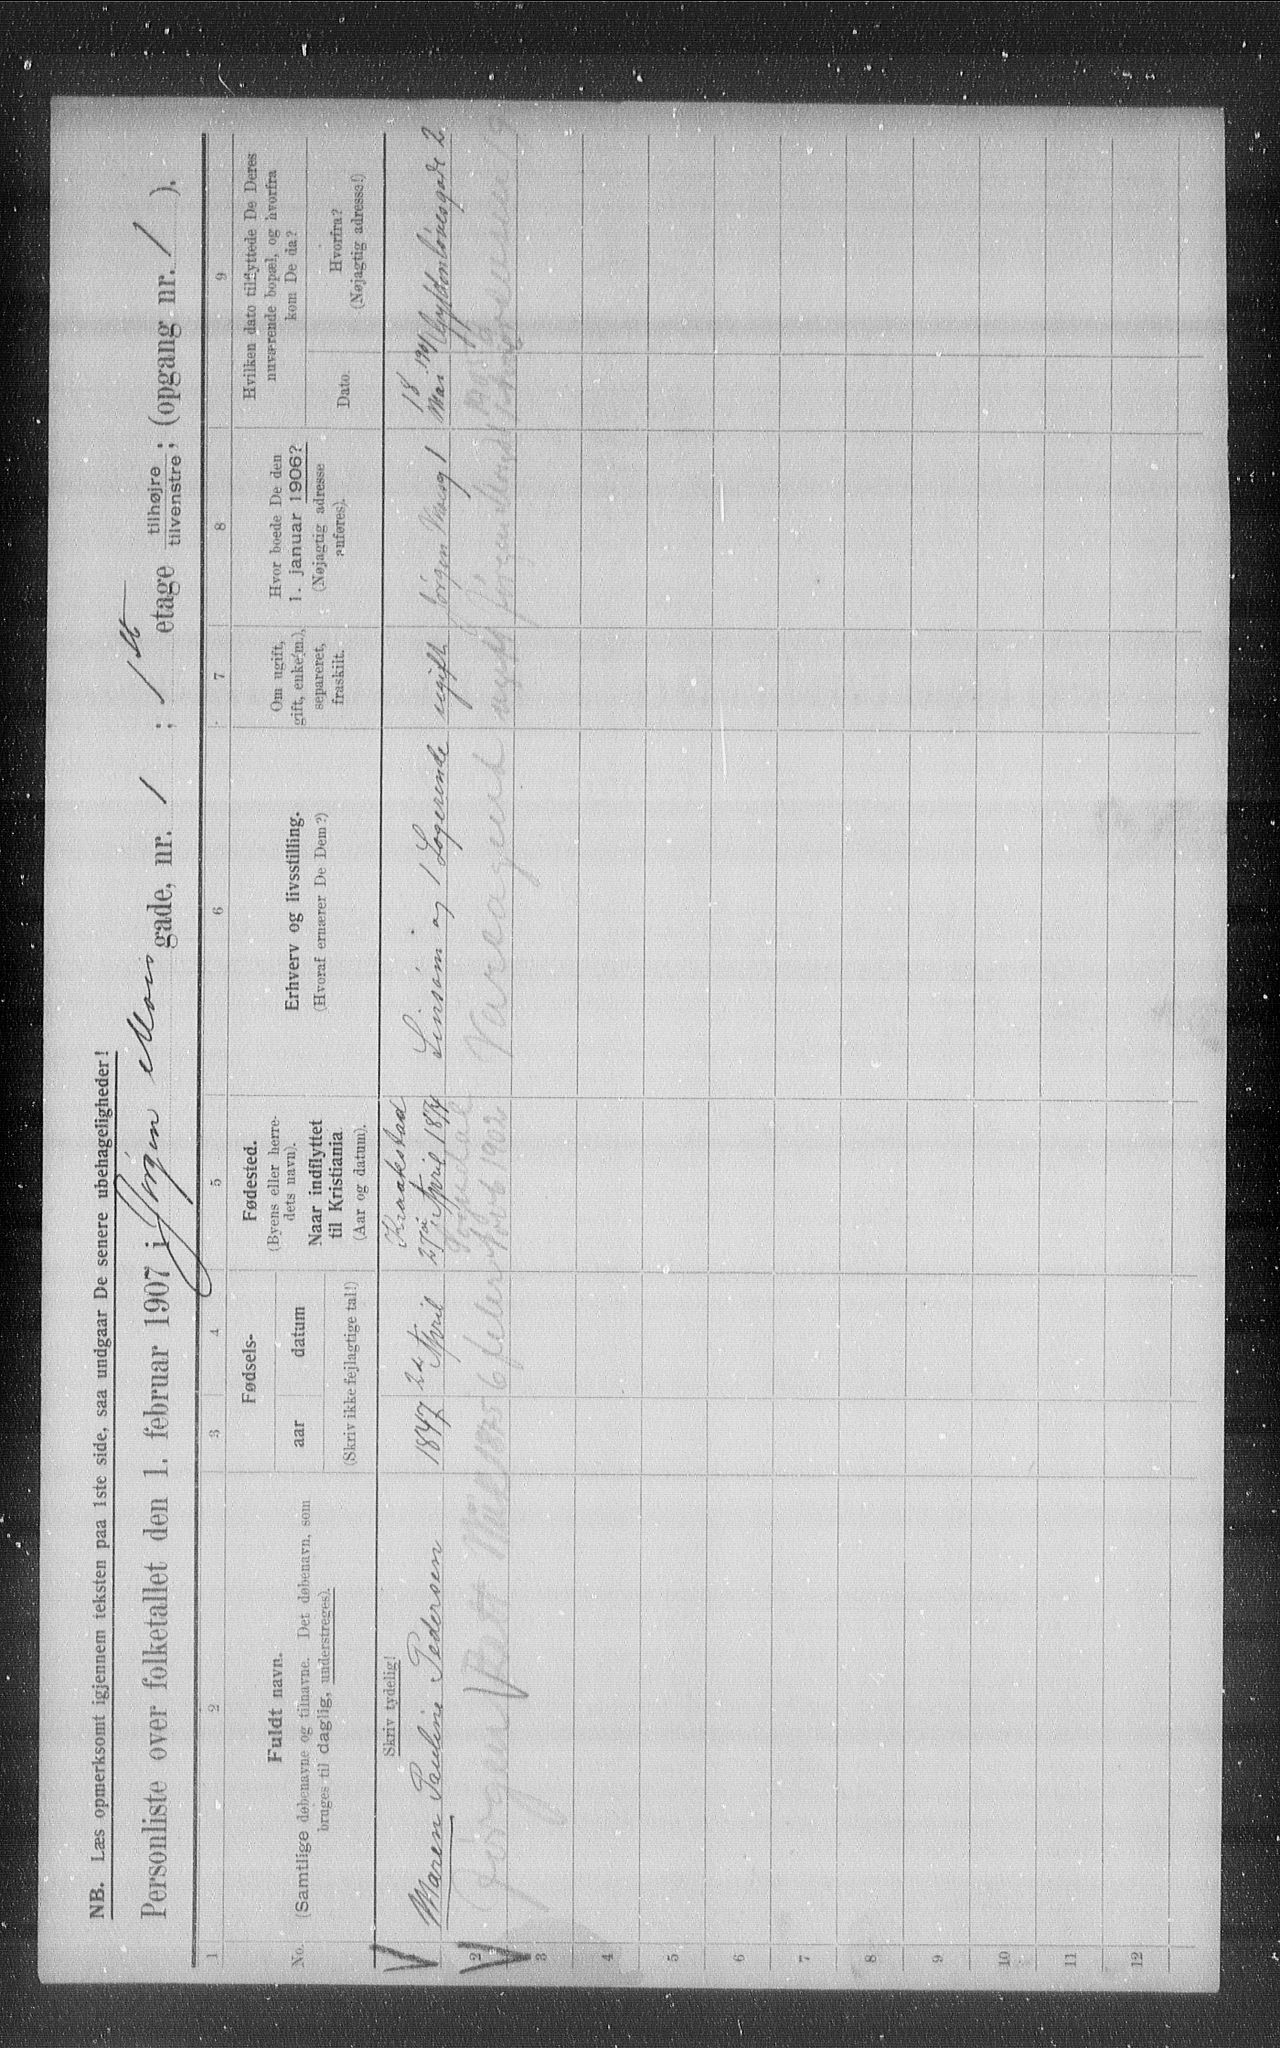 NB. Læs opmerksomt igjennem teksten paa 1ste side, saa undgaar De senere ubehageligheder!
Personliste over folketallet den 1. februar 1907 i Jørgen Mois gade, nr. 1 ; 1st etage tilhøjre tilvenstre; (opgang nr. 1 ).
1 2 3 4 5 6 7 8 9
No.
Fuldt navn.
(Samtlige døbenavne og tilnavne. Det døbenavn, som
bruges til daglig, understreges).
Fødsels-
aar datum
(Skriv ikke fejlagtige tal!)
Fødested.
(Byens eller herre-
dets navn).
Naar indflyttet
til Kristiania
(Aar og datum).
Erhverv og livsstilling.
(Hvoraf ernærer De Dem?)
Om ugift,
gift, enke(m.),
separeret,
fraskilt.
Hvor boede De den
1. januar 1906?
(Nøjagtig adresse
anføres).
Hvilken dato tilflyttede De Deres
nuværende bopæl, og hvorfra
kom De da?
Dato.
Hvorfra?
(Nøjagtig adresse!)
Skriv tydelig!
Maren Pauline Pedersen 1847 22 April Kraakstad 27 April 1874 Linsøm og 1 Logerende ugift Jørgen Moisg 1 18 Mai 1901 Gyldenløvesgade 2
2 Jørgen 1875 6 feber 1902 Vareagent ugift
3
4
5
6
7
8
9
10
11
12